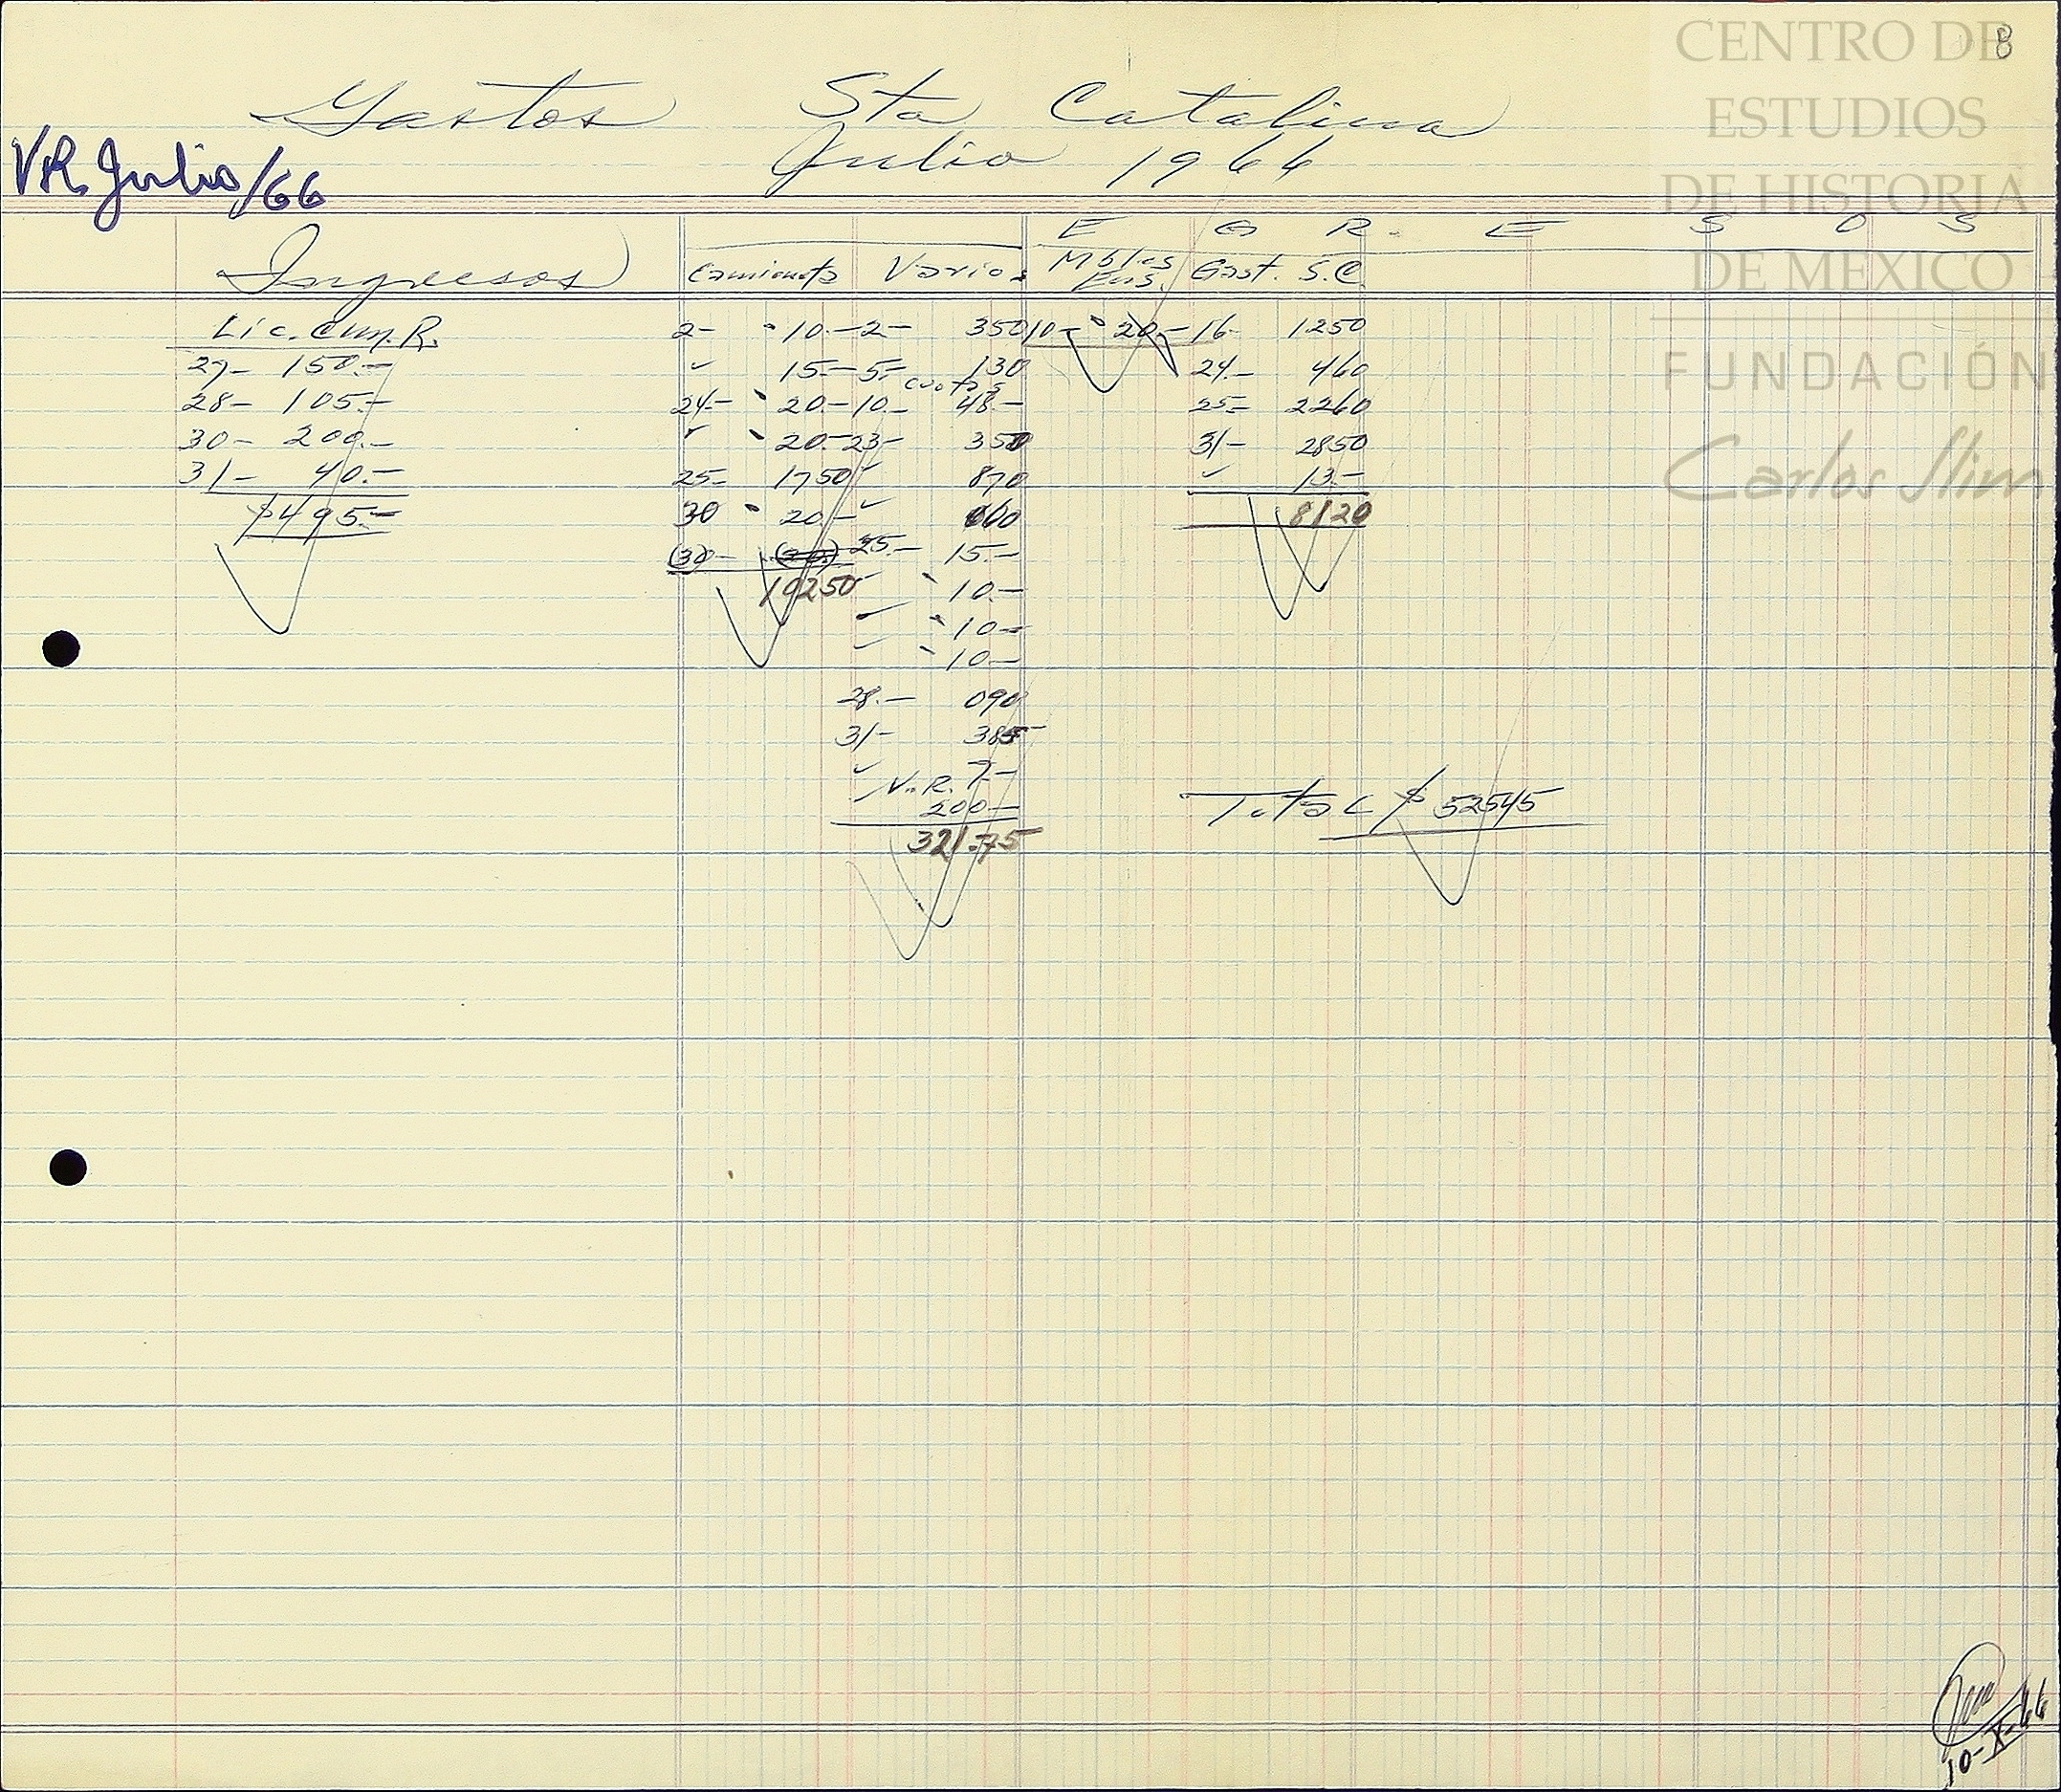 CENTRO DE
ESTUDIOS
DE HISTORIA
DE MEXICO
FUNDACIÓN
Carlos Slim
8
Gastos Sta Catalina
Julio 1966
VR. Julio/66
E G R. E S O S
Ingresos Camioneta Varios Mbles Ens. Gast. S.C.
Lic. Cum. R. 2- 10.- 2- 350 10- 20.- 16- 1250
27- 150.- " 15.- 5.- 130 24.- 460
28- 105.- 24.- 20.- 10.- cuotas 48.- 25- 2260
30- 200.- " 20.- 23- 350 31- 2850
31- 40.- 25- 1750 " 870 " 13.-
$495.- 30 20.- " 600 8120
(30)- 25.- 15.-
10250 " 10.-
" 10-
" 10-
28.- 090
31- 385
" 7-
V.R.
200- Total $ 52545
321.75
10-X-66